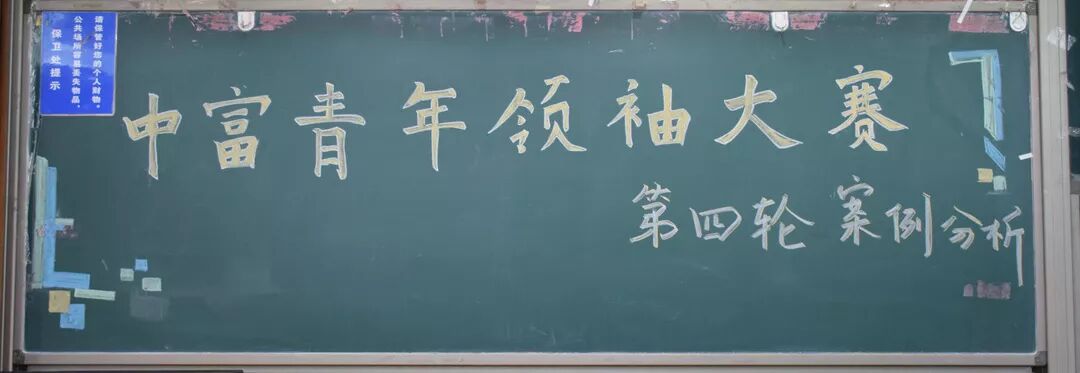 请保管好您的个人财物。
公共场所容易丢失物品,
保卫处提示
中富青年领袖大赛
第四轮 案例分析